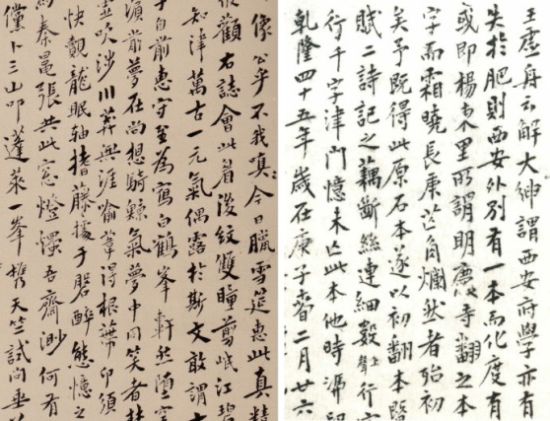 王虛舟云解大紳謂西安府學亦有
失於肥則西安外別有一本而化度有
或即楊東里所謂明慶寺翻之本
字而霜曉長庚芒角爛然者殆初
矣予既得此原石本遂以初翻本暨
賦二詩記之藕斷絲連細縠上行
行千字津門憶未亡此本他時
乾隆四十五年歲在庚子春二月廿六
像公乎不我嗔今日臘雪筵惠此真精
顴右誌會此眉後紋雙瞳剪岷江碧
知津萬古一元氣偶露於斯文敢謂
子自前惠守至為寫白鶴峯軒然墮空
前夢在尚想騎鯨氣夢中同笑者
吹涉川葬與涯喻葦得根蒂印須
快觀龍眠軸藤據于磐醉態憶之
馬秦黽張共此窓燈吾齋渺何有
僅卜三山叩蓬萊一峯攜天竺試問垂